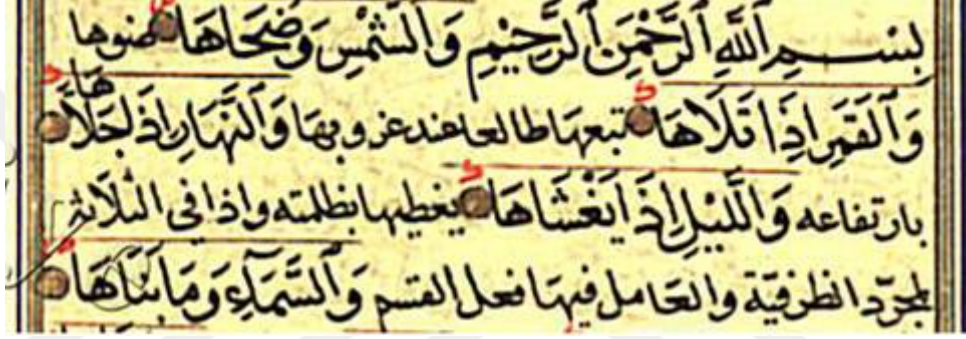 بِسْــمِ ٱللَّهِ ٱلرَّحْمٰنِ ٱلرَّحِيْمِ وَٱلشَّمْسِ وَضُحَاهَا ضوئها
وَٱلْقَمَرِ اِذَا تَلَاهَا تبعها طالعا عند غروبها وَٱلنَّهَارِ اِذَا جَلَّاهَا
بارتفاعه وَٱللَّيْلِ اِذَا يَغْشَاهَا يغطيها بظلمته واذا فى الثلاثة
لمجرّد الظرفيّة والعامل فيها فعل القسم وَٱلسَّمَآءِ وَمَا بَنَاهَا